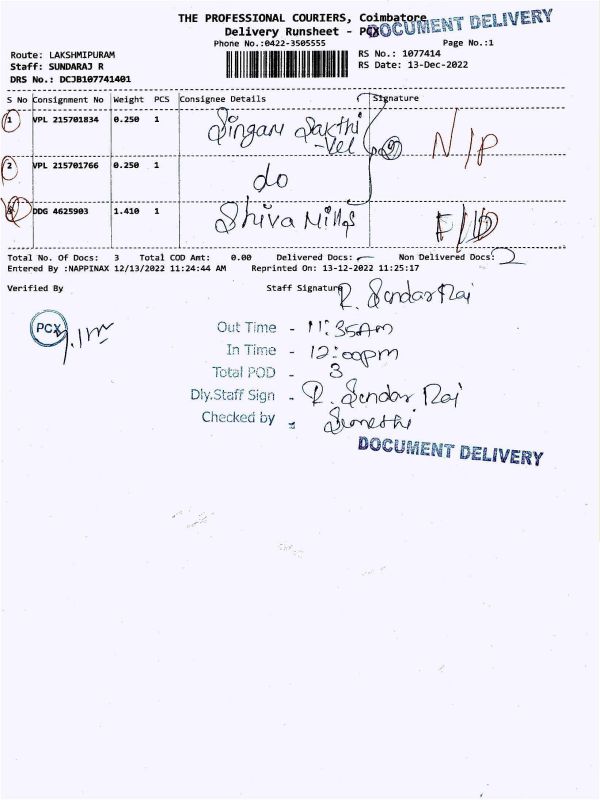 THE PROFESSIONAL COURIERS, Coimbatore
DOCUMENT DELIVERY
Delivery Runsheet - PCX
Phone No.:0422-3505555 Page No.:1
Route: LAKSHMIPURAM RS No.: 1077414
Staff: SUNDARAJ R RS Date: 13-Dec-2022
DRS No.: DCJB107741401
S No Consignment No Weight PCS Consignee Details Signature
1 VPL 215701834 0.250 1 Singan Sakthi
-Vel N/P
2 VPL 215701766 0.250 1 do
3 DDG 4625903 1.410 1 Shiva Mills
Total No. Of Docs: 3 Total COD Amt: 0.00 Delivered Docs: Non Delivered Docs:
Entered By :NAPPINAX 12/13/2022 11:24:44 AM Reprinted On: 13-12-2022 11:25:17
Verified By Staff Signature R. Sundar Raj
PCX
Out Time - 11:35Am
In Time - 12:00pm
Total POD - 3
Dly.Staff Sign - R. Sundar Raj
Checked by -
DOCUMENT DELIVERY